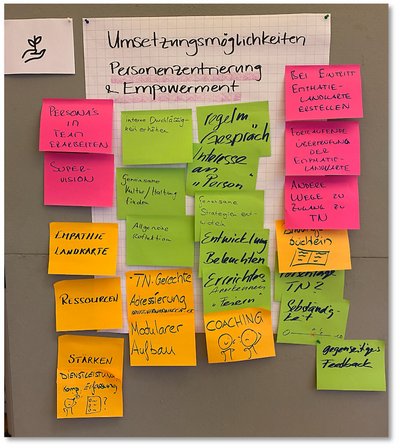 Umsetzungsmöglichkeiten
Personenzentrierung
& Empowerment
PERSONA'S
IN
TEAM
ERARBEITEN
SUPER-
VISION
EMPATHIE
LANDKARTE
RESSOURCEN
STÄRKEN
DIENSTLEISTUNG
Komp. Erfassung
?
interne Durchlässig-
keit erhöhen
Gemeinsame
Kultur/Haltung
finden
Allgemeine
Reflektion
TN-Gerechte
Adressierung
Modularer
Aufbau
regelm
Gespräch
Interesse
an
"Person"
Gemeinsame
Strategien ent-
wickeln
Entwicklung
Beleuchten
Erreichtes
Anerkennen
+ Feiern
COACHING
BEI EINTRITT
EMPATHIE-
LANDKARTE
ERSTELLEN
FORTLAUFENDE
ÜBERPRÜFUNG
DER
EMPATHIE-
LANDKARTE
ANDERE
WEGE ZU
ZUGANG ZU
TN
büchlein
TNZ
Selbständig-
keit
gegenseitiges
Feedback